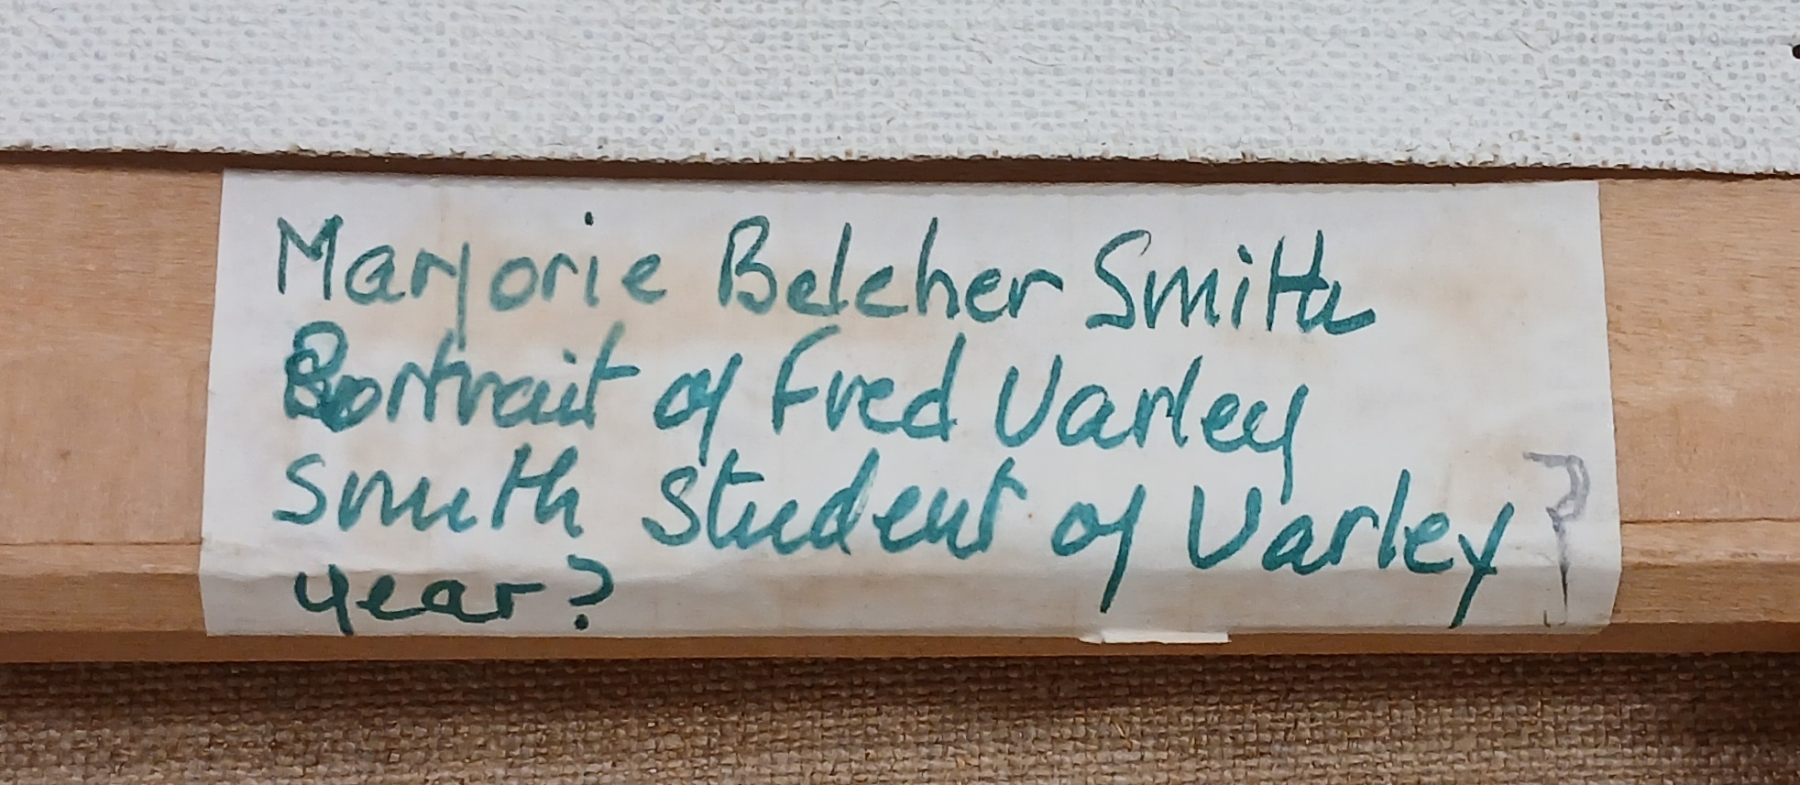 Marjorie Belcher Smith
Portrait of Fred Varley
Smith Student of Varley ?
year?